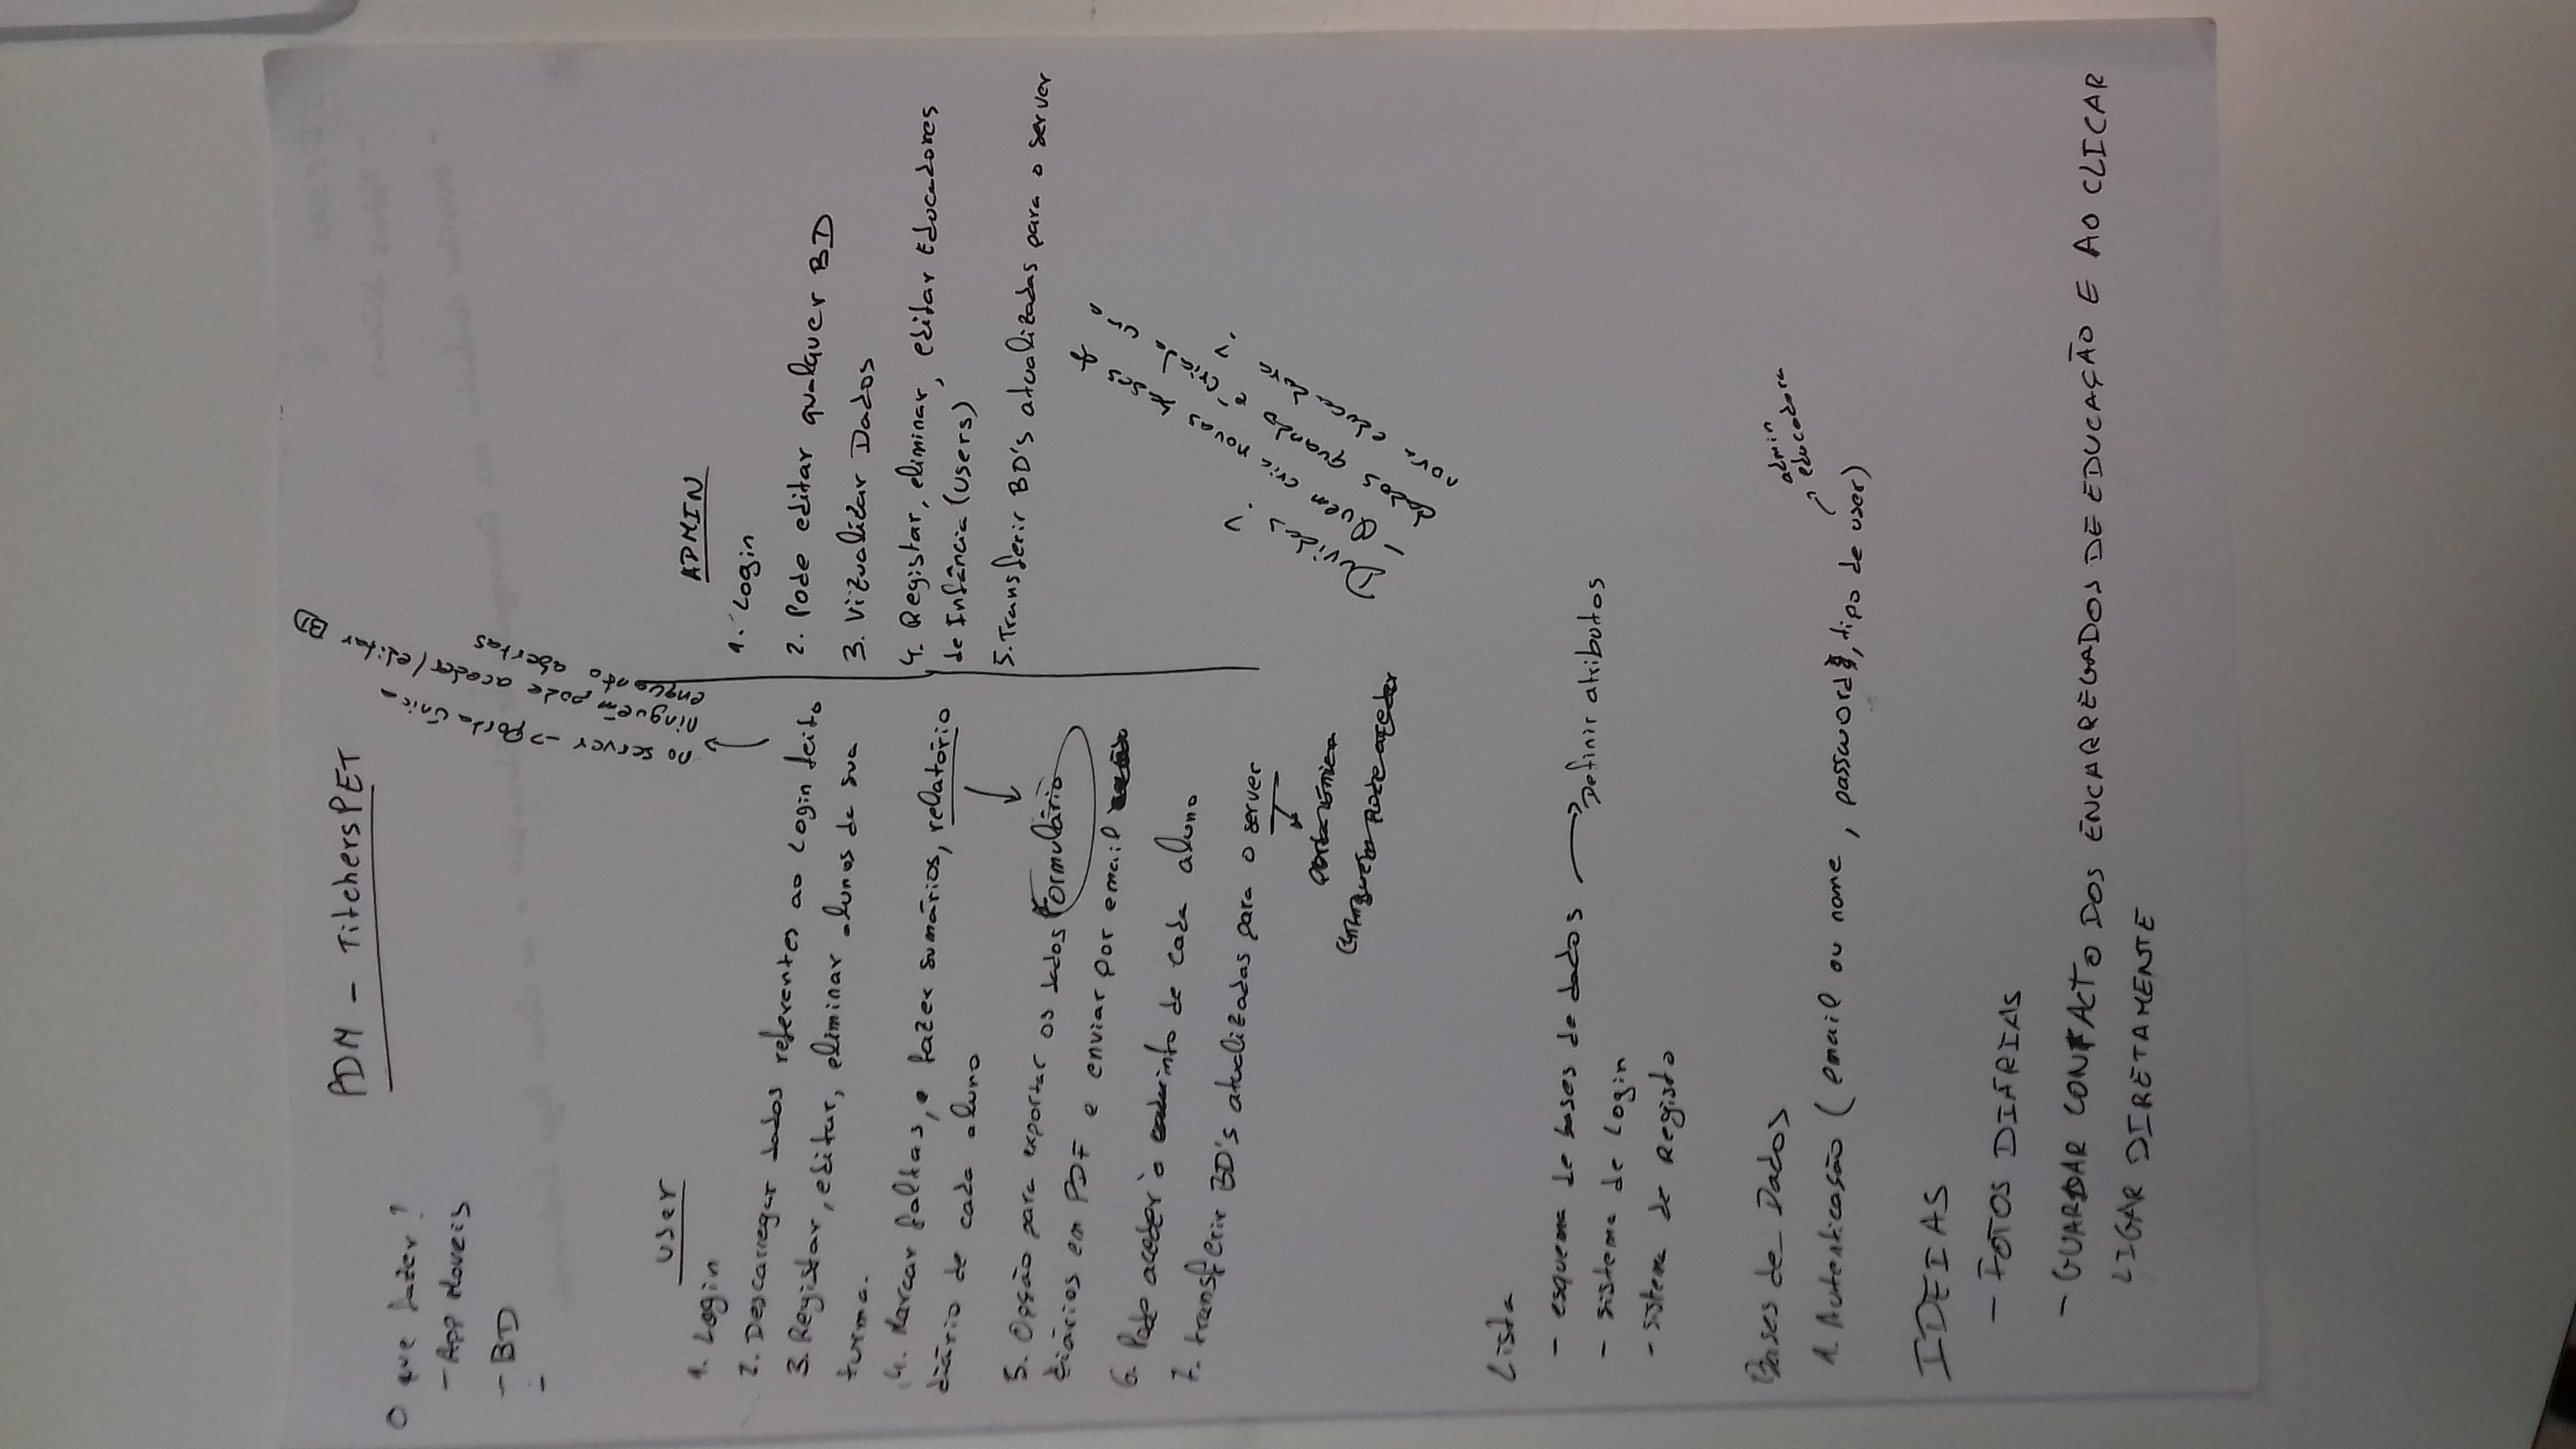 PDM - TitchersPET
O que fazer?
- App Moveis
- BD
-
no server -> Porta única
ninguém pode aceder/editar BD
enquanto abertas
User
1. Login
2. Descarregar dados referentes ao Login feito
3. Registar, editar, eliminar alunos da sua
turma.
4. Marcar faltas, e fazer sumários, relatório
diário de cada aluno
Formulário
5. Opção para exportar os dados
diários em PDF e enviar por email
6. Pode aceder à info de cada aluno
7. transferir BD's atualizadas para o server
porta única
(ninguém pode aceder
ADMIN
1. Login
2. Pode editar qualquer BD
3. Vizualizar Dados
4. Registar, eliminar, editar Educadores
de Infância (users)
5. Transferir BD's atualizadas para o server
Duvidas?
- Quem cria novas bases d
dados quando é criada uma
nova educadora?
Lista
- esquema de bases de dados -> Definir atributos
- sistema de Login
- sistema de Registo
Bases de Dados
admin
educadora
1. Autenticação (email ou nome, password, tipo de user)
IDEIAS
- FOTOS DIÁRIAS
- GUARDAR CONTACTO DOS ENCARREGADOS DE EDUCAÇÃO E AO CLICAR
LIGAR DIRETAMENTE